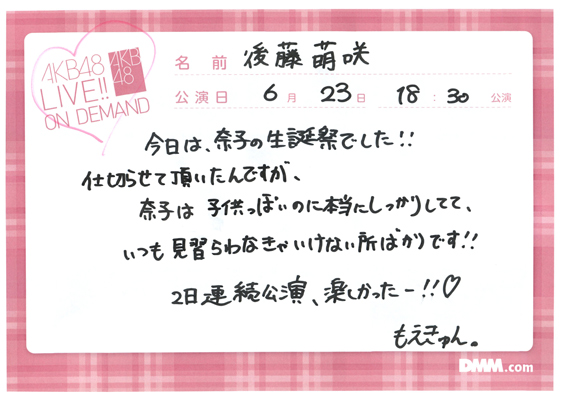 AKB48
LIVE!!
ON DEMAND
AKB
48
名前 後藤萌咲
公演日 6月 23日 18:30 公演
今日は、奈子の生誕祭でした!!
仕切らせて頂いたんですが、
奈子は 子供っぽいのに本当にしっかりしてて、
いつも見習らわなきゃいけない所ばかりです!!
2日連続公演、楽しかったー!!♡
もえきゅん。
DMM.com